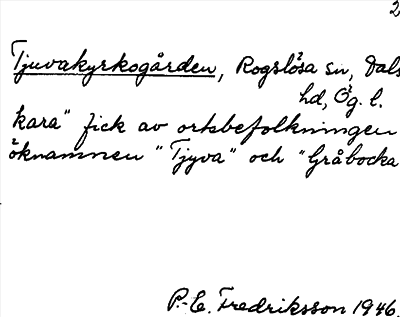 2
Tjuvakyrkogården, Rogslösa sn, Dals
hd, Ög. l.
kara" fick av ortsbefolkningen
öknamnen "Tjyva" och "Gråbocka
P.-E. Fredriksson 1946.